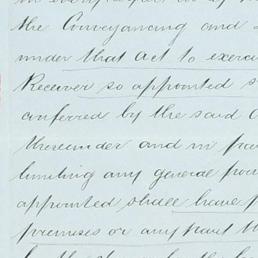 the Conveyancing and
under that Act to exerci
Receiver so appointed s
conferred by the said A
thereunder and in
limiting any general pow
appointed shall have p
premises or any part th